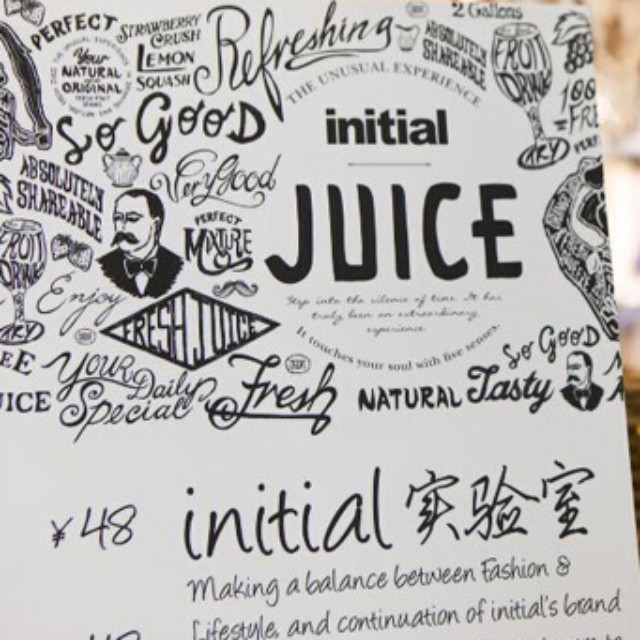 PERFECT
STRAWBERRY
CRUSH
LEMON
SQUASH
Your
NATURAL
ORIGINAL
Refreshing
2 Gallons
ABSOLUTELY
SHAREABLE
FRUIT
DRINK
THE UNUSUAL EXPERIENCE
initial
JUICE
So GOOD
Very Good
ABSOLUTELY
SHAREABLE
PERFECT
MIXTURE
FRUIT
Enjoy
FRESH JUICE
Step into the silence of time. It has
truly been an extraordinary
experience.
It touches your soul with five senses.
YOUR Daily
Special
Fresh
So GOOD
NATURAL Tasty
¥48
initial 实验室
Making a balance between Fashion &
Lifestyle, and continuation of initial's brand